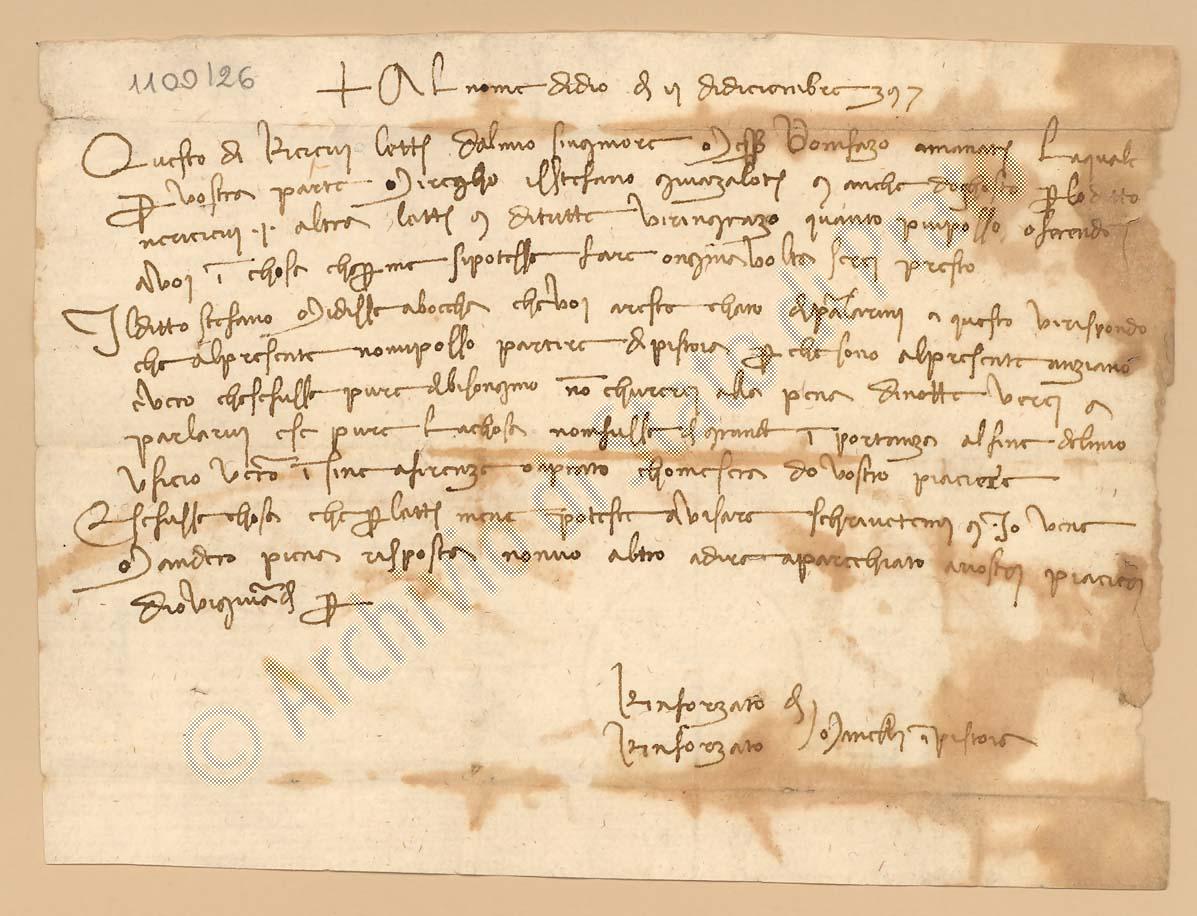 1109/26
+ Al nome didio di 11 didiciembre 397
Questo di Ricievi lettera dalmio singniore Messer Bonifazo amanati Laquale
per vostra parte Mirecho istefano guazaloti e anche per loditto
nericievi .1. altra lettera e ditutte viringrazo quanto piuposso oferendomi
avoi in chosa cheperme sipotesse fare ongniavolta serei presto
Ilditto stefano Midisse abocha chevoi areste charo diparlarmi e questo virispondo
che alpresente nomiposso partire dipistoia per che sono alpresente anziano
evero chesefusse pure dibisongnio non churerei alla pena dinotte verei a
parlarvi ese pure lachosa nomfusse di grande inportanza alfine delmio
uficio verro insine afirenze oaprato chomesera do vostro piaciere
Esefusse chosa cheperlettera mene poteste avisare schrivetemi e Io vene
Mandero piena risposta nonnio altro adire aparechiato avostri piacieri
diovighuardi per
Rinforzato di
Rinforzato Mancelli inpistoia
© Archivio di Stato di Prato